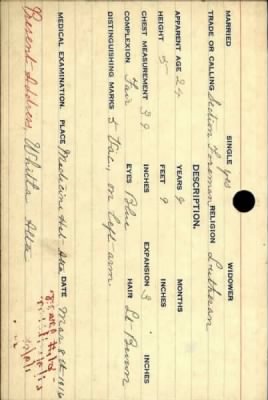 MARRIED SINGLE yes WIDOWER
TRADE OR CALLING Section Foreman RELIGION Lutheran
DESCRIPTION.
APPARENT AGE 24 YEARS 9 MONTHS
HEIGHT 5 FEET 9 INCHES
CHEST MEASUREMENT 39 INCHES EXPANSION 3 INCHES
COMPLEXION Fair EYES Blue HAIR Lt-Brown
DISTINGUISHING MARKS 5 Vac., on left arm.
MEDICAL EXAMINATION. PLACE Medicine Hat - Alta DATE Mar 8th 1916
Present Address, Whitla Alta